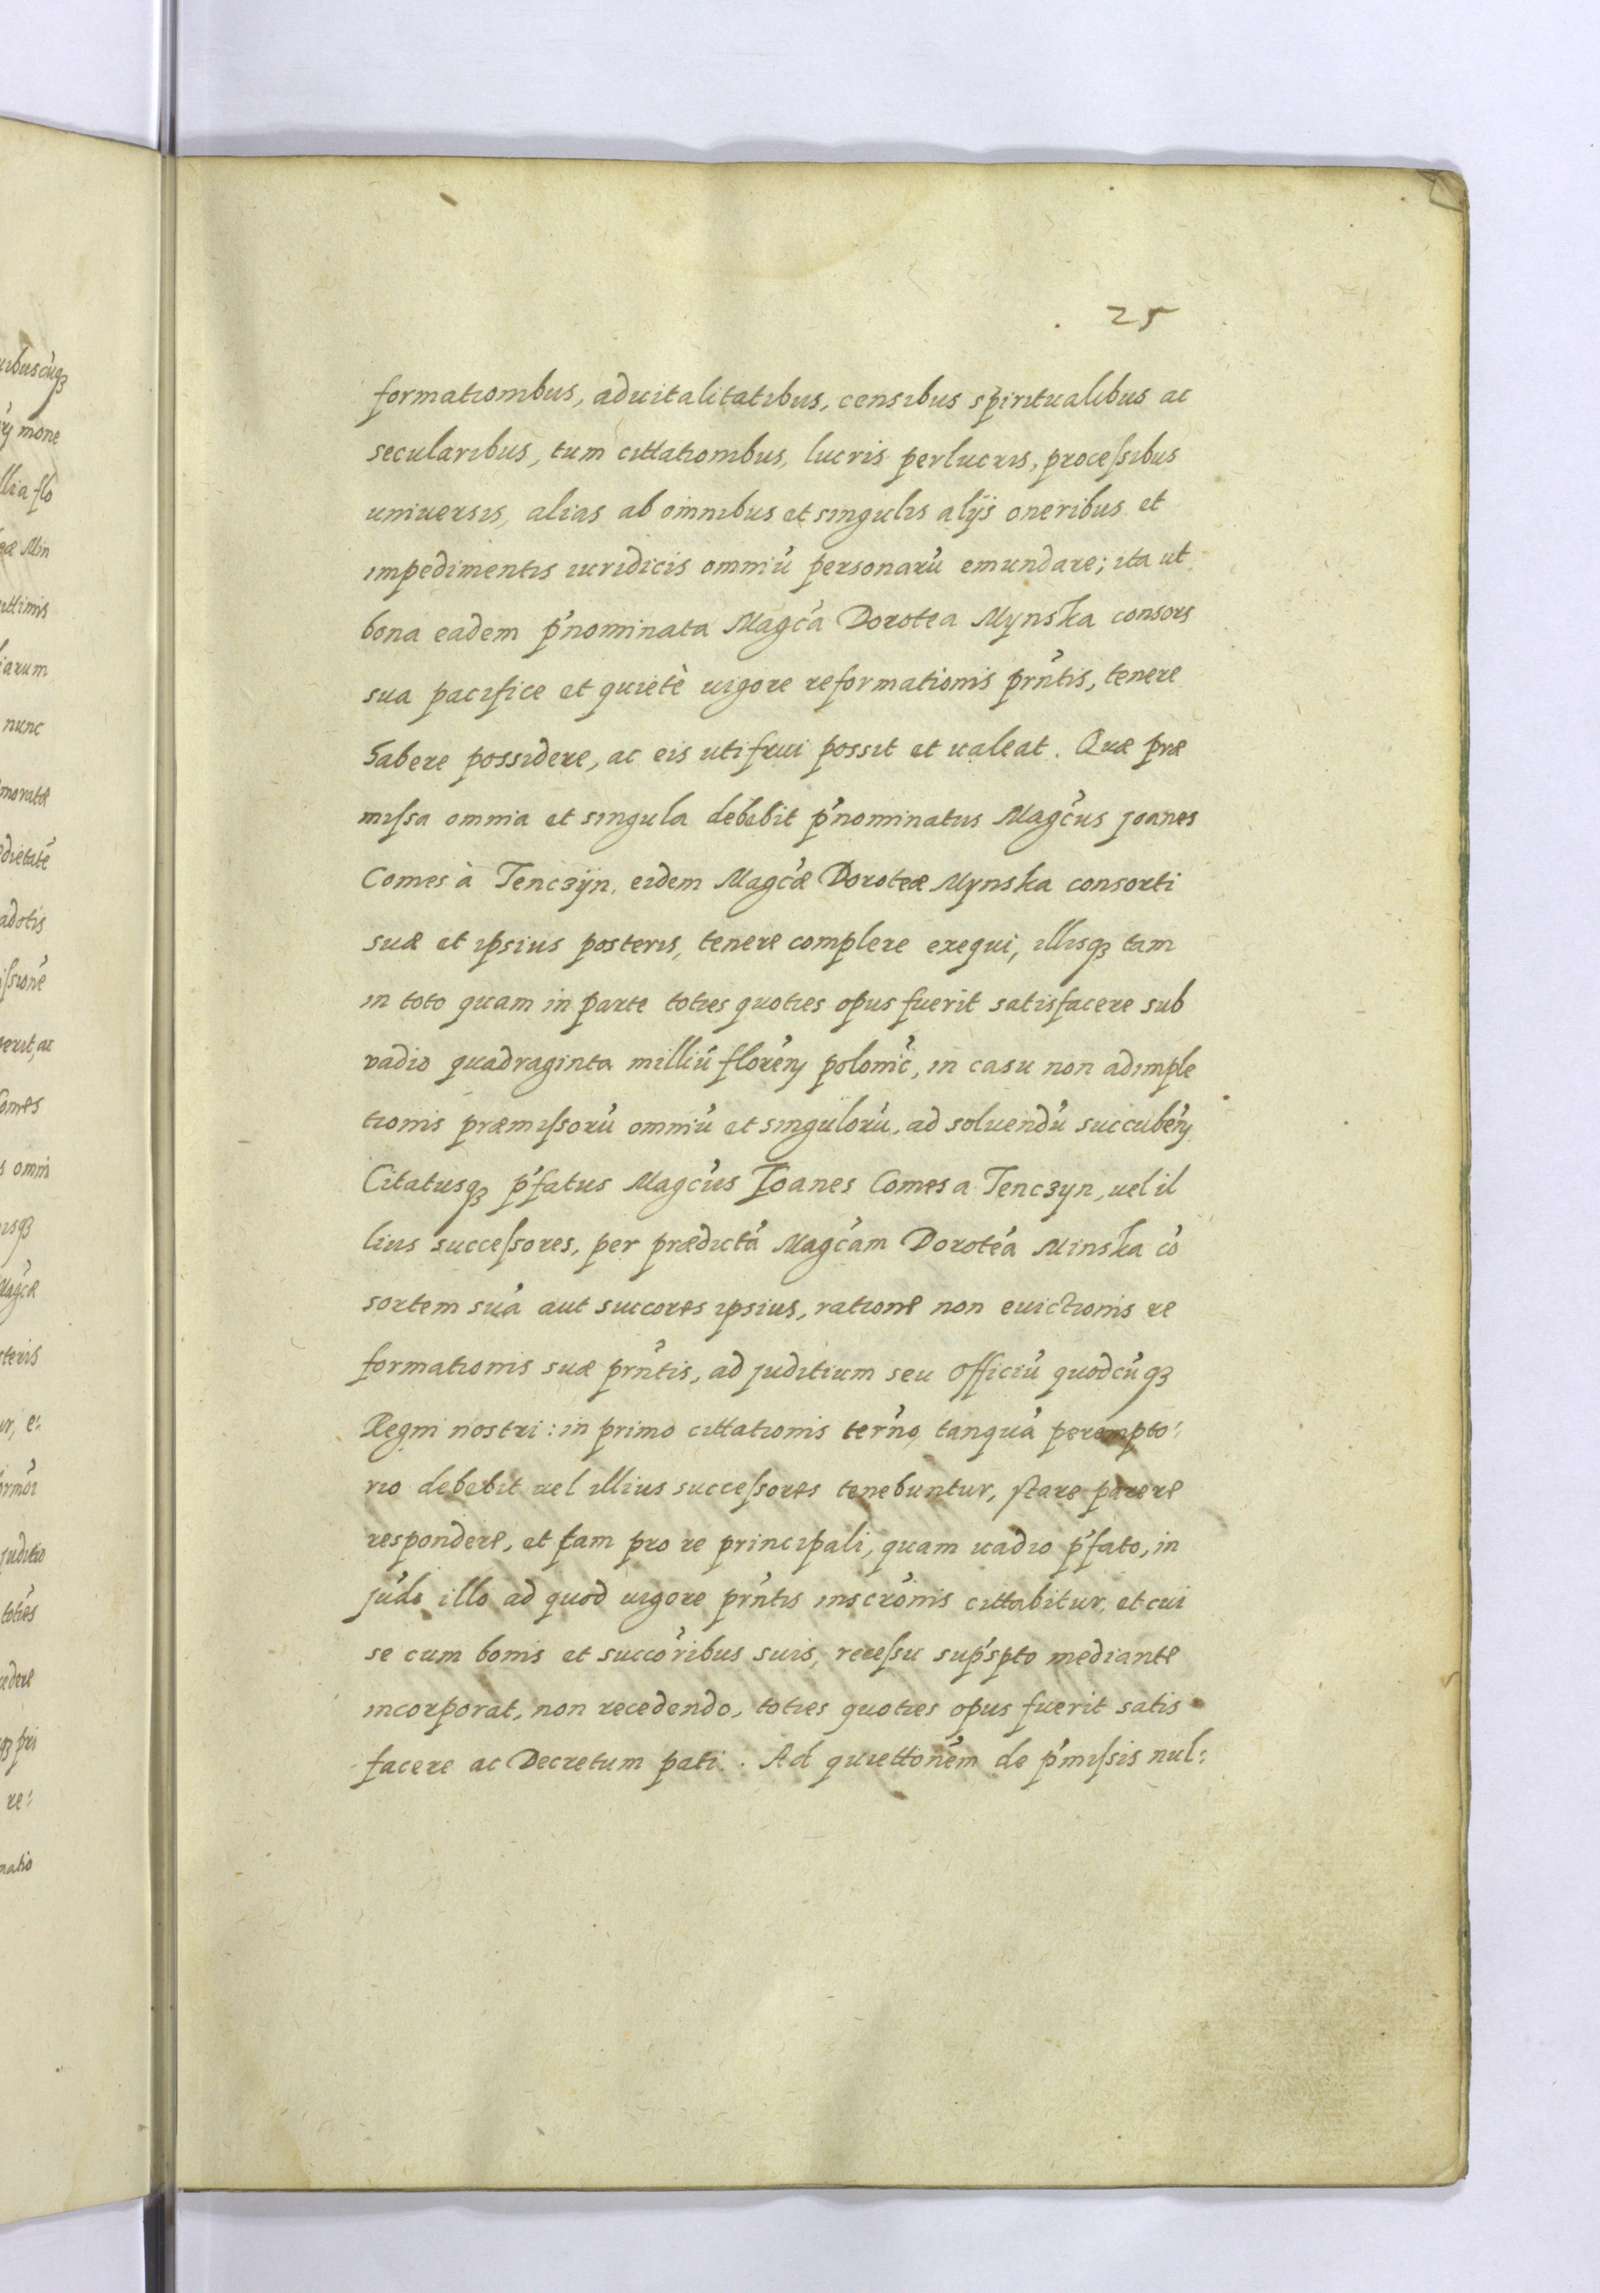 25
formationibus, aduitalitatibus, censibus spiritualibus ac
secularibus, tum cittationibus, lucris perlucris, processibus
uniuersis, alias ab omnibus et singulis alijs oneribus et
impedimentis iuridicis omniu' personaru' emundare; ita ut
bona eadem p'nominata Magc'a Dorotea Mynska consors
sua pacifice et quietè uigore reformationis prn'tis, tenere
habere possidere, ac eis utifrui possit et ualeat. Quæ præ
missa omnia et singula debebit p'nominatus Magc'us Joanes
Comes à Tenczÿn, eidem Magc'æ Doroteæ Mynska consorti
suæ et ipsius posteris, tenere complere exequi, illisqȝ tam
in toto quam in parte toties quoties opus fuerit satisfacere sub
vadio quadraginta milliu' flore'ŋ polonic', in casu non adimple
tionis præmissoru' omniu' et singuloru', ad soluendu' succube'ŋ
Citatusqȝ p'fatus Magc'us Joanes Comes a Tenczyn, uel il
lius successores, per prædicta' Magc'am Dorote'a Minska co'
sortem sua' aut succores ipsius, ratione non euictionis re
formationis suæ prn'tis, ad juditium seu officiu' quodcu'qȝ
Regni nostri: in primo cittationis ter'no tanqua' perempto:
rio debebit uel illius successores tenebuntur, stare parere
respondere, et tam pro re principali, quam uadio p'fato, in
ju'do illo ad quod uigore prn'tis inscro'nis cittabitur, et cui
se cum bonis et succo'ribus suis, recessu sup'spto mediante
incorporat, non recedendo, toties quoties opus fuerit satis
facere ac Decretum pati. Ad quietto'nem de p'missis nul: